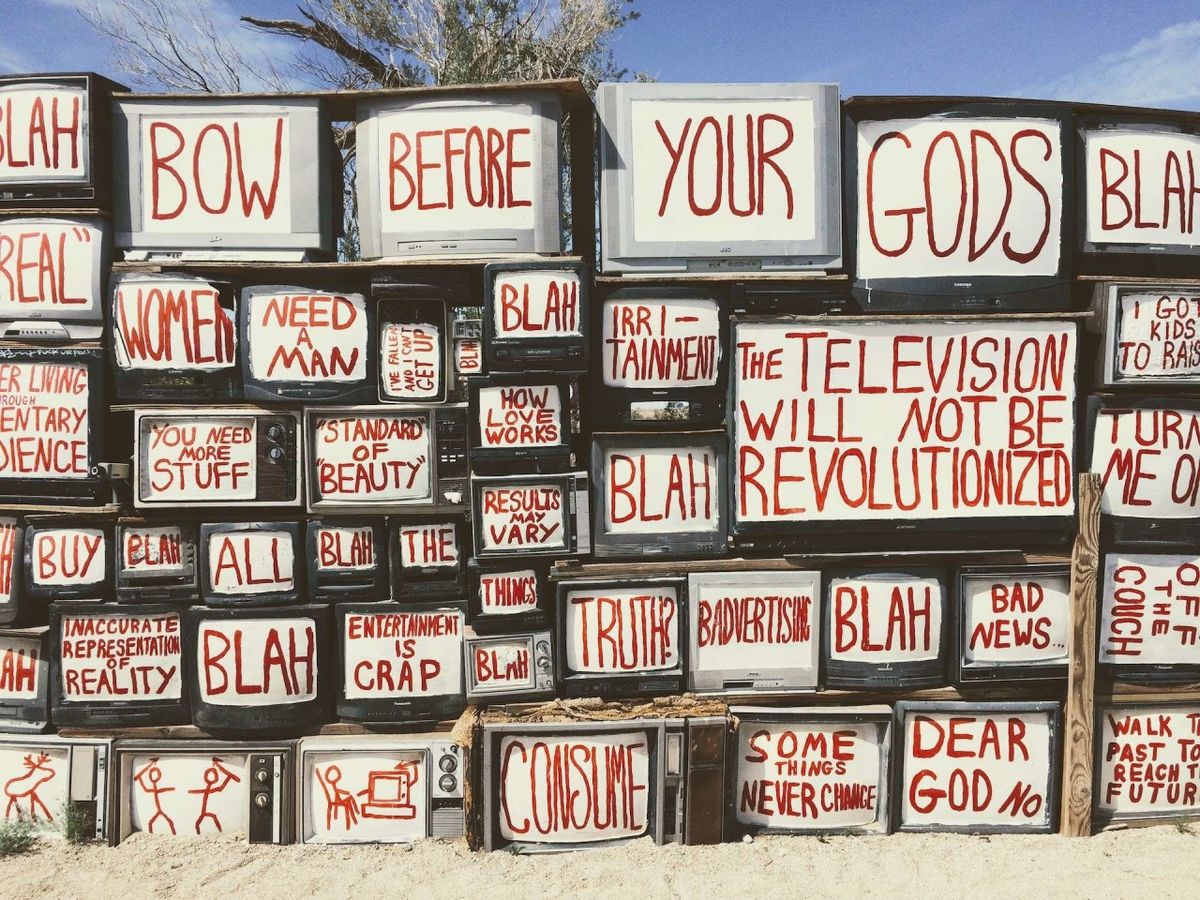 BLAH
BOW
BEFORE
YOUR
GODS
BLAH
REAL"
WOMEN
NEED
A
MAN
I'VE FALLEN
AND I CAN'T
GET UP
BLAH
BLAH
IRRI-
TAINMENT
THE TELEVISION
WILL NOT BE
REVOLUTIONIZED
I GOT
KIDS
TO RAISE
ER LIVING
THROUGH
ENTARY
DIENCE
"YOU NEED
MORE
STUFF"
"STANDARD
OF
"BEAUTY"
HOW
LOVE
WORKS
RESULTS
MAY
VARY
BLAH
TURN
ME O
BUY
BLAH
ALL
BLAH
THE
THINGS
AH
INACCURATE
REPRESENTATION
OF
REALITY
BLAH
ENTERTAINMENT
IS
CRAP
BLAH
TRUTH?
BADVERTISING
BLAH
BAD
NEWS...
OFF
THE
COUCH
CONSUME
SOME
THINGS
NEVER CHANGE
DEAR
GOD NO
WALK T
PAST TO
REACH T
FUTUR